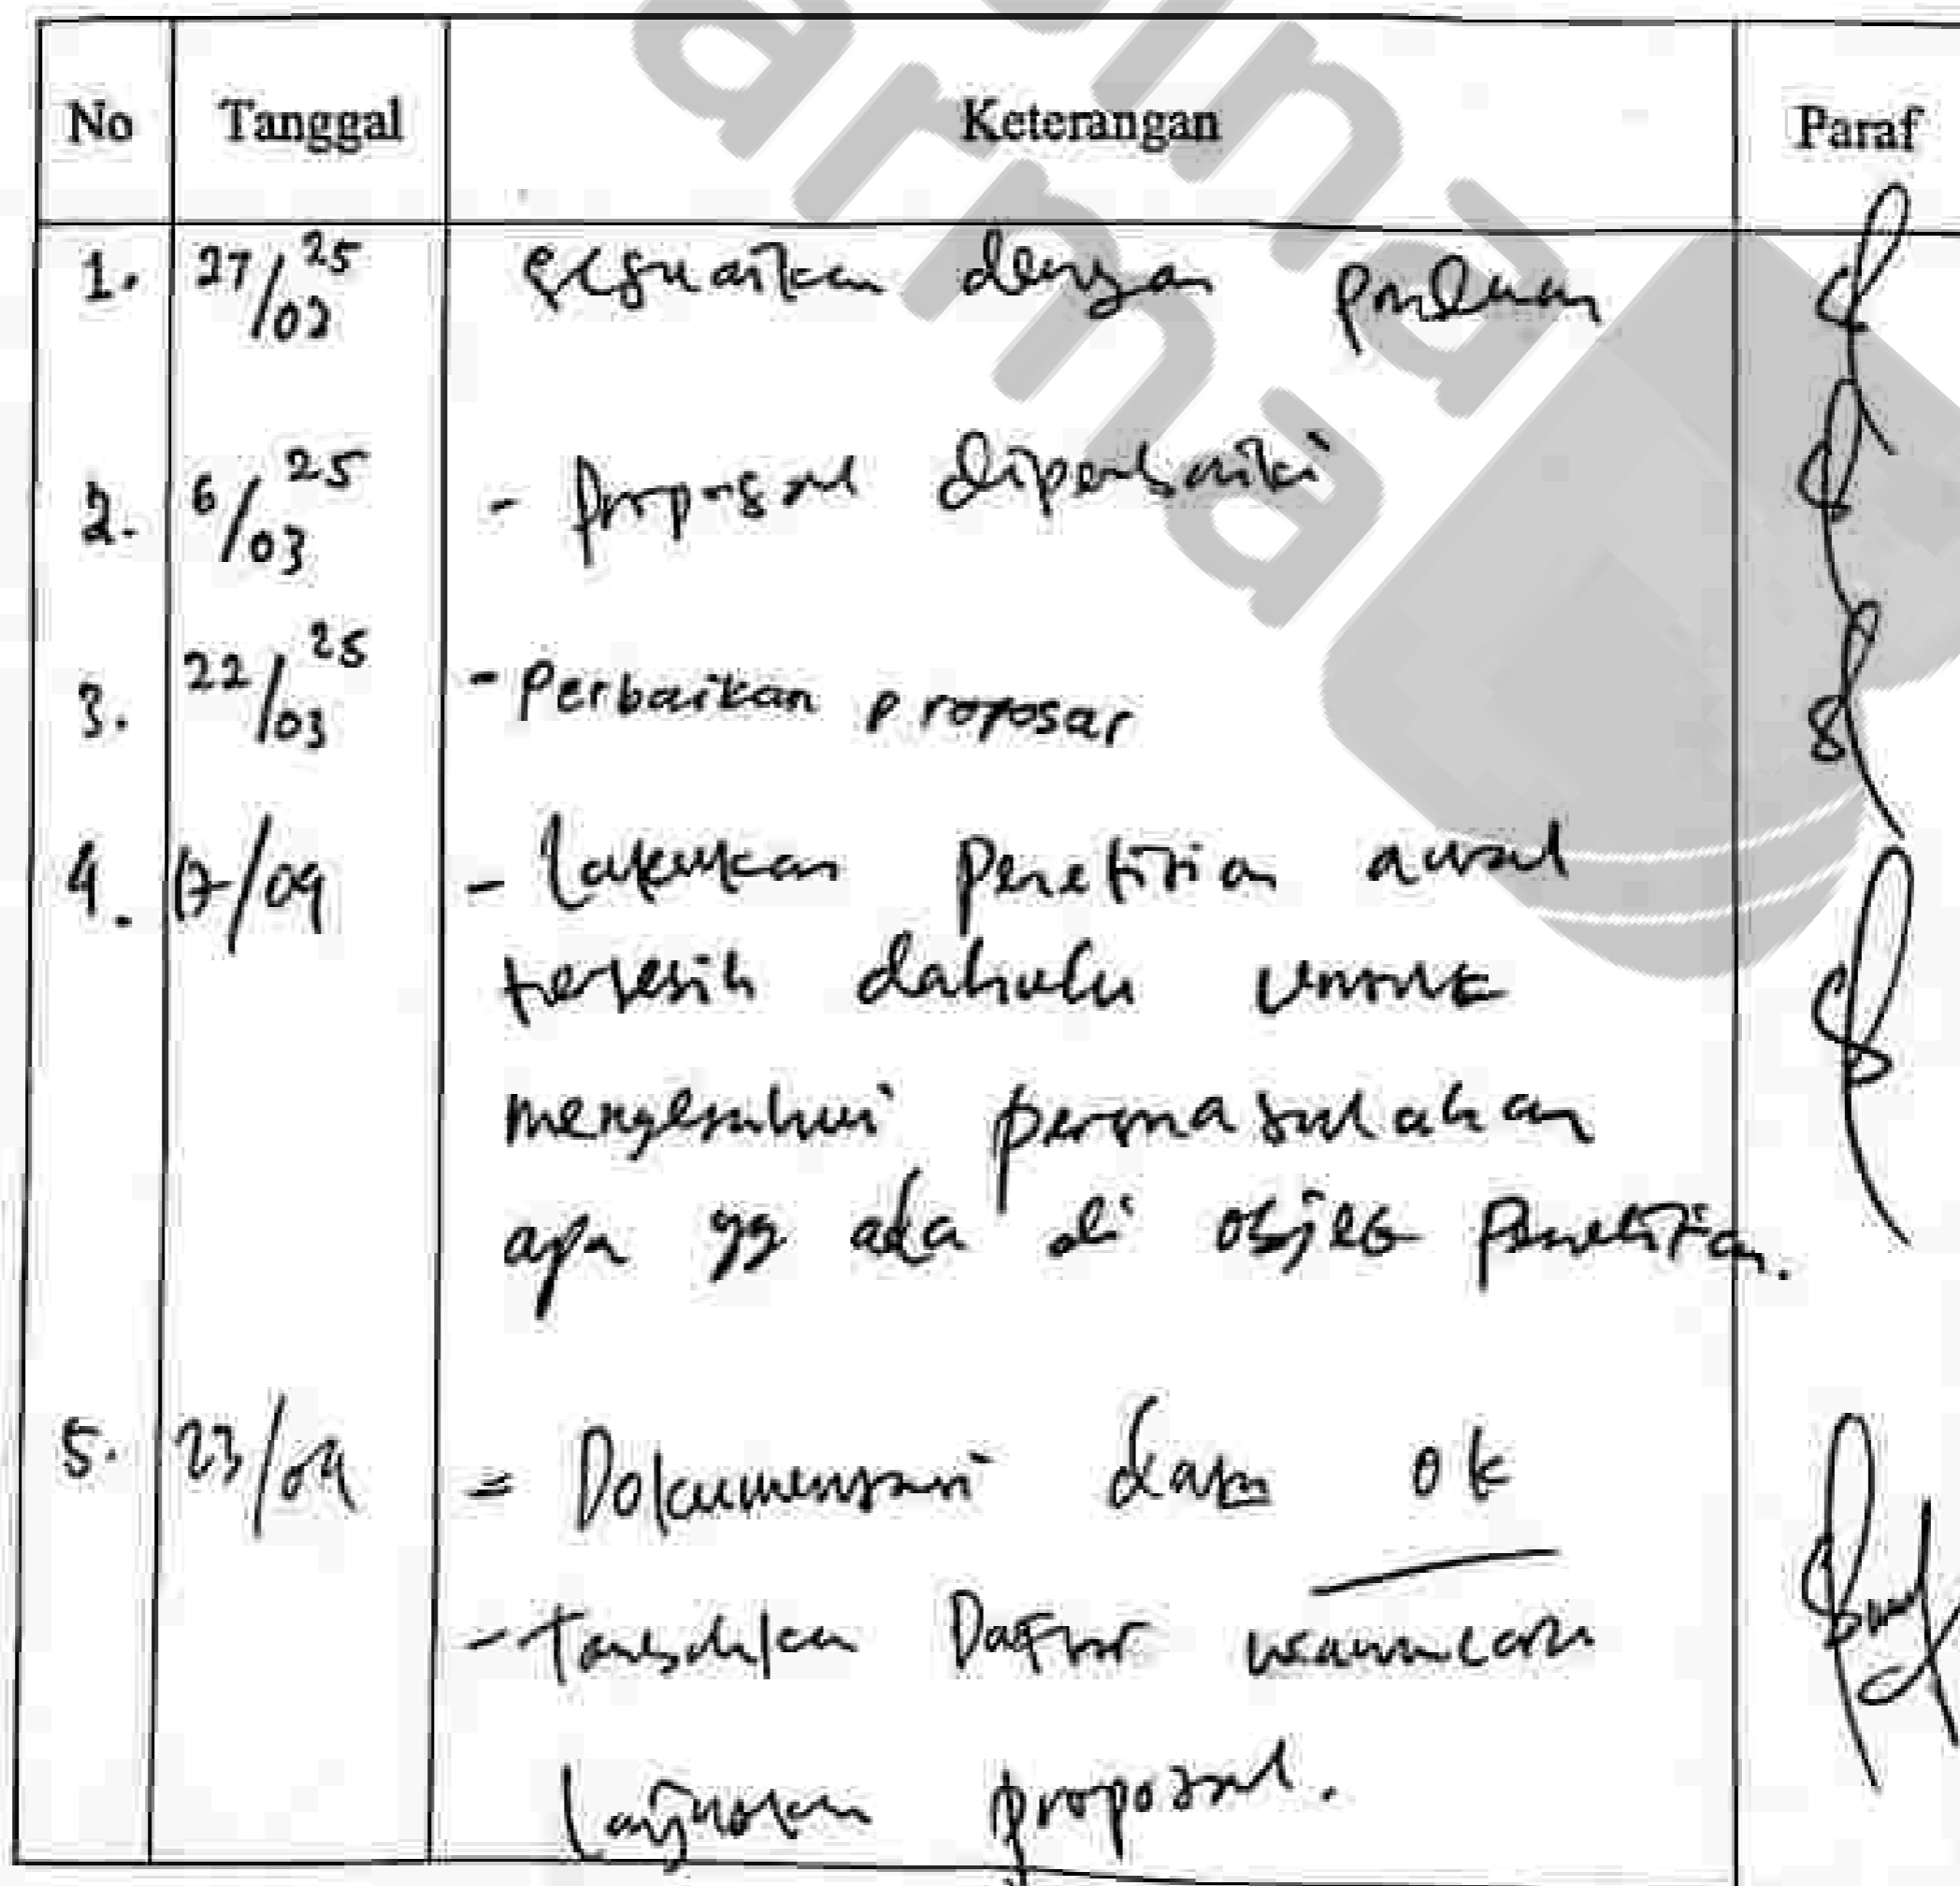 No Tanggal Keterangan Paraf
1. 27/02 25 Sesuaikan dengan panduan
2. 6/03 25 - Proposal diperbaiki
3. 22/03 25 - Perbaikan proposal
4. 17/04 - Lakukan Penelitian awal
terlebih dahulu untuk
mengetahui permasalahan
apa yg ada di objek Penelitian.
5. 23/04 - Dokumentasi data ok
- Tambahkan Daftar wawancara
Lanjutkan proposal.